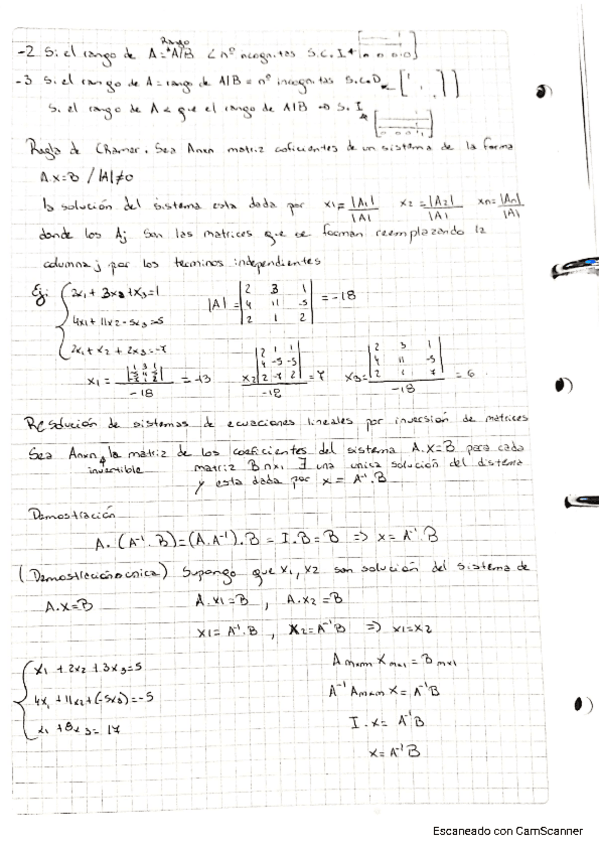 -2 Si el rango de A = Rango A|B < nº incognitas S.C.I
-3 Si el rango de A = rango de A|B = nº incognitas S.C.D
Si el rango de A < que el rango de A|B => S.I
Regla de Chramer. Sea Anxn matriz coficientes de un sistema de la forma
A.x=B / |A|≠0
la solución del sistema esta dada por x1=|A1|/|A| x2=|A2|/|A| xn=|An|/|A|
donde los Aj son las matrices que se forman reemplazando la
columna j por los terminos independientes
Ej: 2x1 + 3x2 + x3 = 1
4x1 + 11x2 - 5x3 = 5
2x1 + x2 + 2x3 = -7
|A| = |2 3 1 / 4 11 -5 / 2 1 2| = -18
x1 = / -18 = -13 x2 / -18 = 7 x3 = / -18 = 6
Resolución de sistemas de ecuaciones lineales por inversión de matrices
Sea Anxn invertible la matriz de los coeficientes del sistema A.x=B para cada
matriz Bnx1 ∃ una unica solución del distema
y esta dada por x = A⁻¹.B
Demostración
A.(A⁻¹.B)=(A.A⁻¹).B = I.B = B => x = A⁻¹.B
(Demostración única) Supongo que x1, x2 son solución del sistema de
A.x=B A.x1=B , A.x2=B
x1=A⁻¹.B , x2=A⁻¹B => x1=x2
x1 + 2x2 + 3x3 = 5
4x1 + 11x2 + (-5x3) = -5
x1 + 8x3 = 17
Amxm Xmx1 = Bmx1
A⁻¹ Amxm X = A⁻¹B
I.x = A⁻¹B
x = A⁻¹B
Escaneado con CamScanner